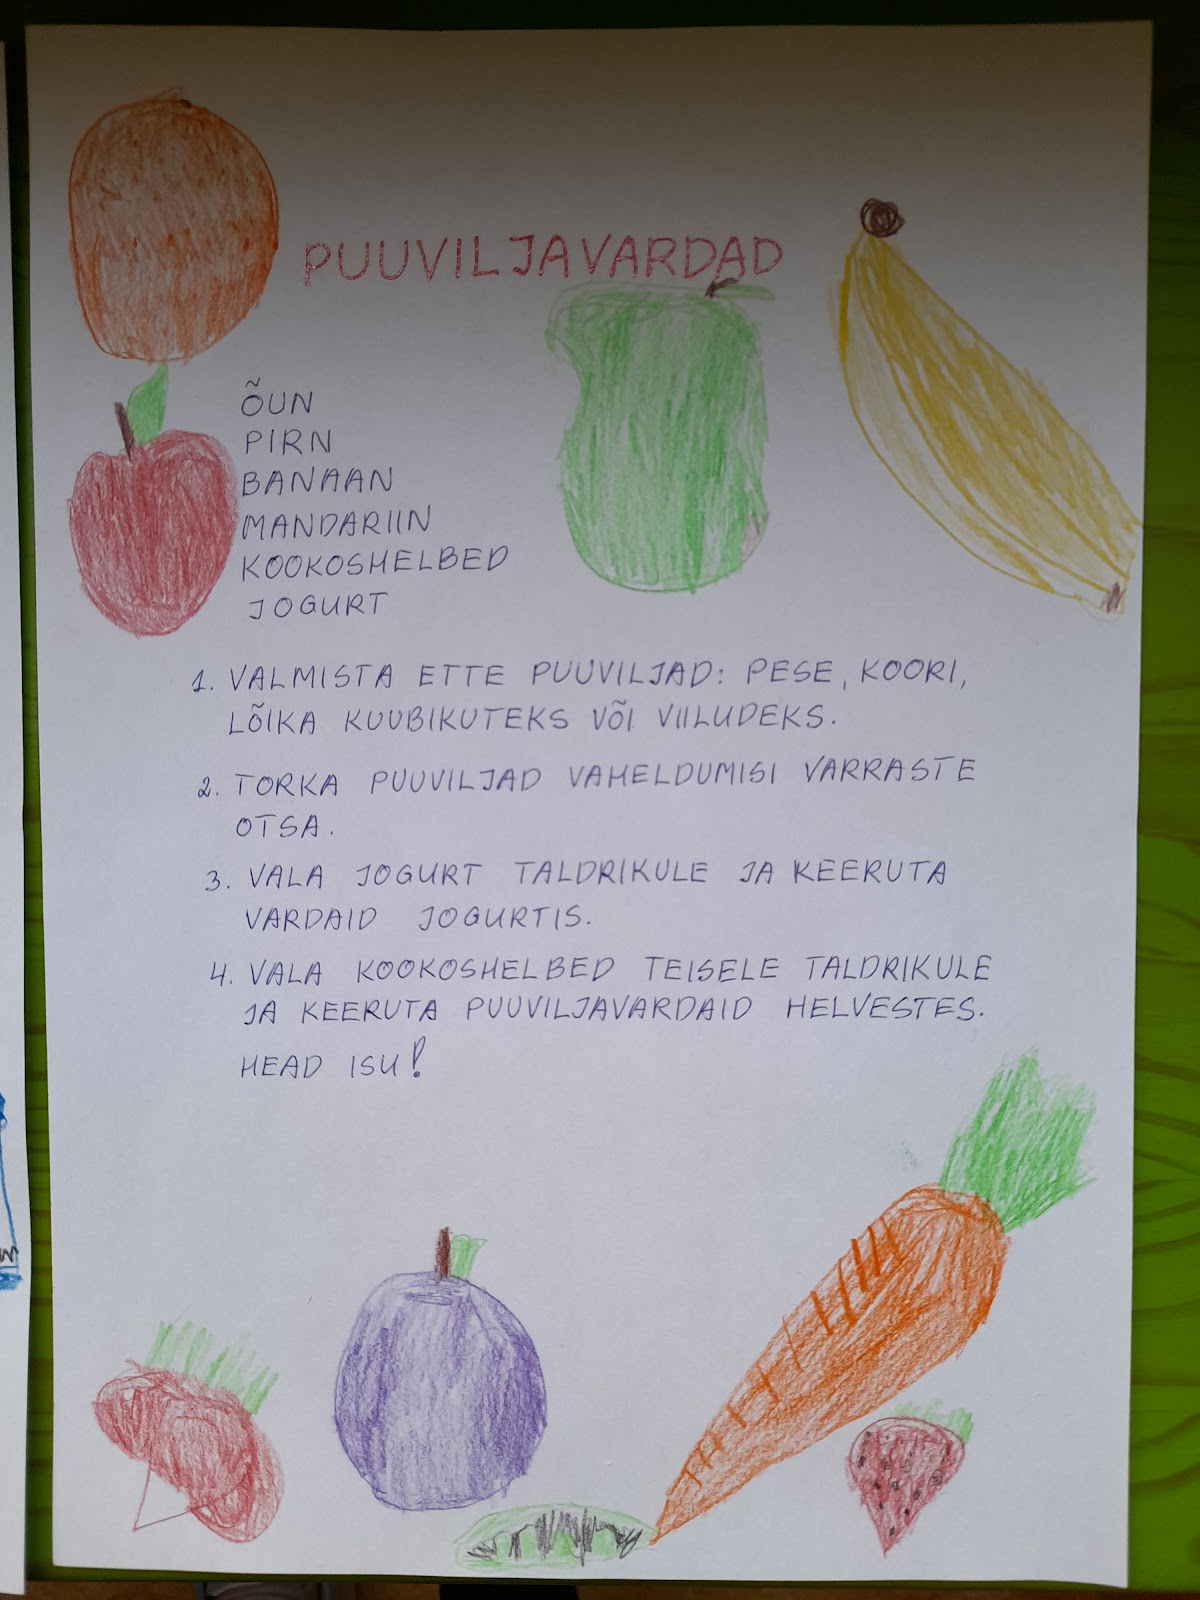 PUUVILJAVARDAD
ÕUN
PIRN
BANAAN
MANDARIIN
KOOKOSHELBED
JOGURT
1. VALMISTA ETTE PUUVILJAD: PESE, KOORI,
LÕIKA KUUBIKUTEKS VÕI VIILUDEKS.
2. TORKA PUUVILJAD VAHELDUMISI VARRASTE
OTSA.
3. VALA JOGURT TALDRIKULE JA KEERUTA
VARDAID JOGURTIS.
4. VALA KOOKOSHELBED TEISELE TALDRIKULE
JA KEERUTA PUUVILJAVARDAID HELVESTES.
HEAD ISU!